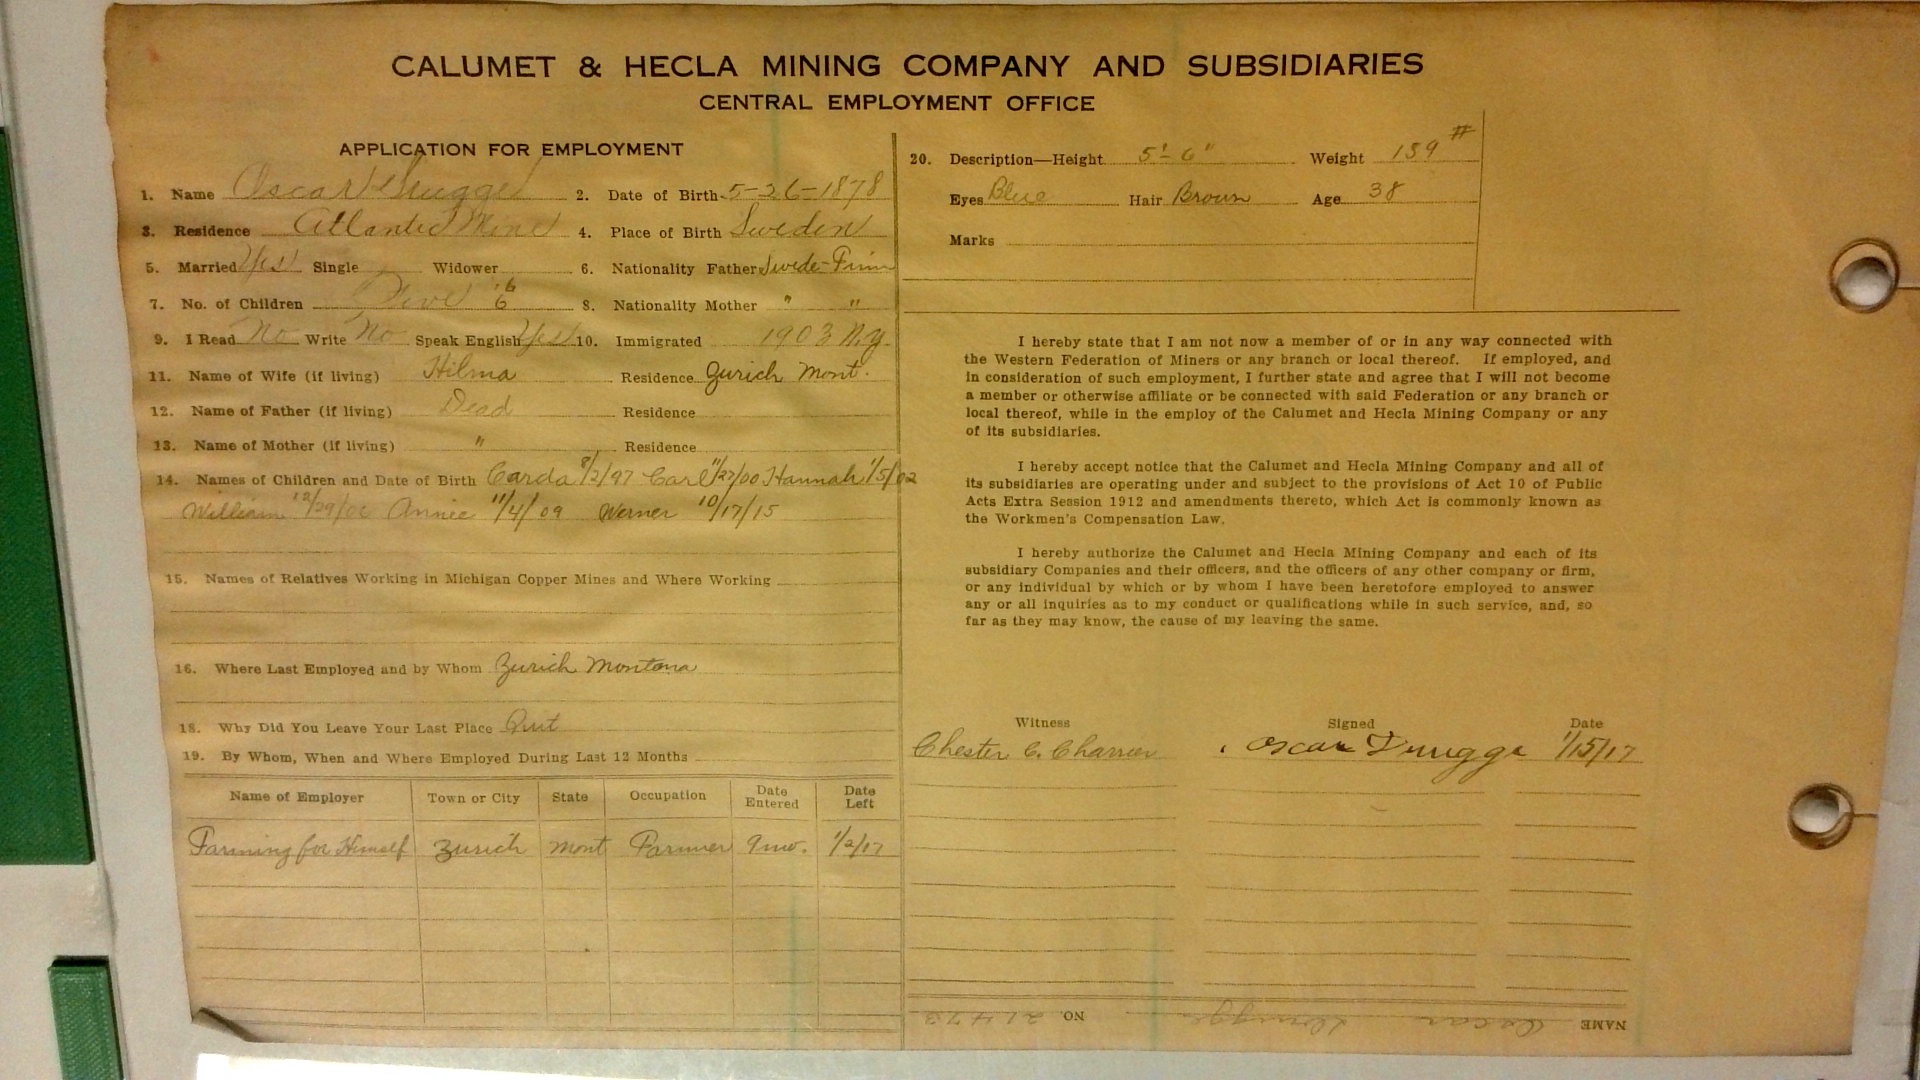 CALUMET & HECLA MINING COMPANY AND SUBSIDIARIES
CENTRAL EMPLOYMENT OFFICE
APPLICATION FOR EMPLOYMENT
1. Name Oscar 2. Date of Birth 5-26-1878
3. Residence Atlantic Mine 4. Place of Birth Sweden
5. Married Yes Single Widower 6. Nationality Father Swede-Finn
7. No. of Children Five 6 8. Nationality Mother " "
9. I Read No Write No Speak English Yes 10. Immigrated 1903 N.Y.
11. Name of Wife (if living) Hilma Residence Zurich Mont.
12. Name of Father (if living) Dead Residence
13. Name of Mother (if living) " Residence
14. Names of Children and Date of Birth Carda 8/2/97 Carl 11/27/00 Hannah 1/5/02
William Annie 11/4/09 Werner 10/17/15
15. Names of Relatives Working in Michigan Copper Mines and Where Working
16. Where Last Employed and by Whom Zurich Montana
18. Why Did You Leave Your Last Place Quit
19. By Whom, When and Where Employed During Last 12 Months
Name of Employer Town or City State Occupation Date Entered Date Left
Farming for Himself Zurich Mont Farmer 9 mo. 1/2/17
20. Description—Height 5'-6" Weight 159 #
Eyes Blue Hair Brown Age 38
Marks
I hereby state that I am not now a member of or in any way connected with
the Western Federation of Miners or any branch or local thereof. If employed, and
in consideration of such employment, I further state and agree that I will not become
a member or otherwise affiliate or be connected with said Federation or any branch or
local thereof, while in the employ of the Calumet and Hecla Mining Company or any
of its subsidiaries.
I hereby accept notice that the Calumet and Hecla Mining Company and all of
its subsidiaries are operating under and subject to the provisions of Act 10 of Public
Acts Extra Session 1912 and amendments thereto, which Act is commonly known as
the Workmen's Compensation Law.
I hereby authorize the Calumet and Hecla Mining Company and each of its
subsidiary Companies and their officers, and the officers of any other company or firm,
or any individual by which or by whom I have been heretofore employed to answer
any or all inquiries as to my conduct or qualifications while in such service, and, so
far as they may know, the cause of my leaving the same.
Witness Signed Date
Chester C. Charrier Oscar 1/15/17
NAME Oscar NO. 21473